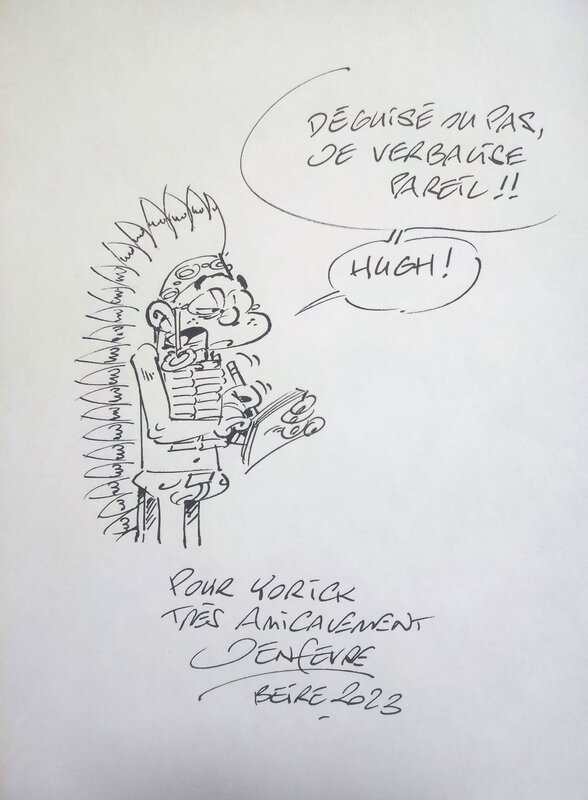 DÉGUISÉ OU PAS,
JE VERBALISE
PAREIL!!
HUGH!
POUR YORICK
TRÈS AMICALEMENT
JENFEVRE
BEIRE 2023